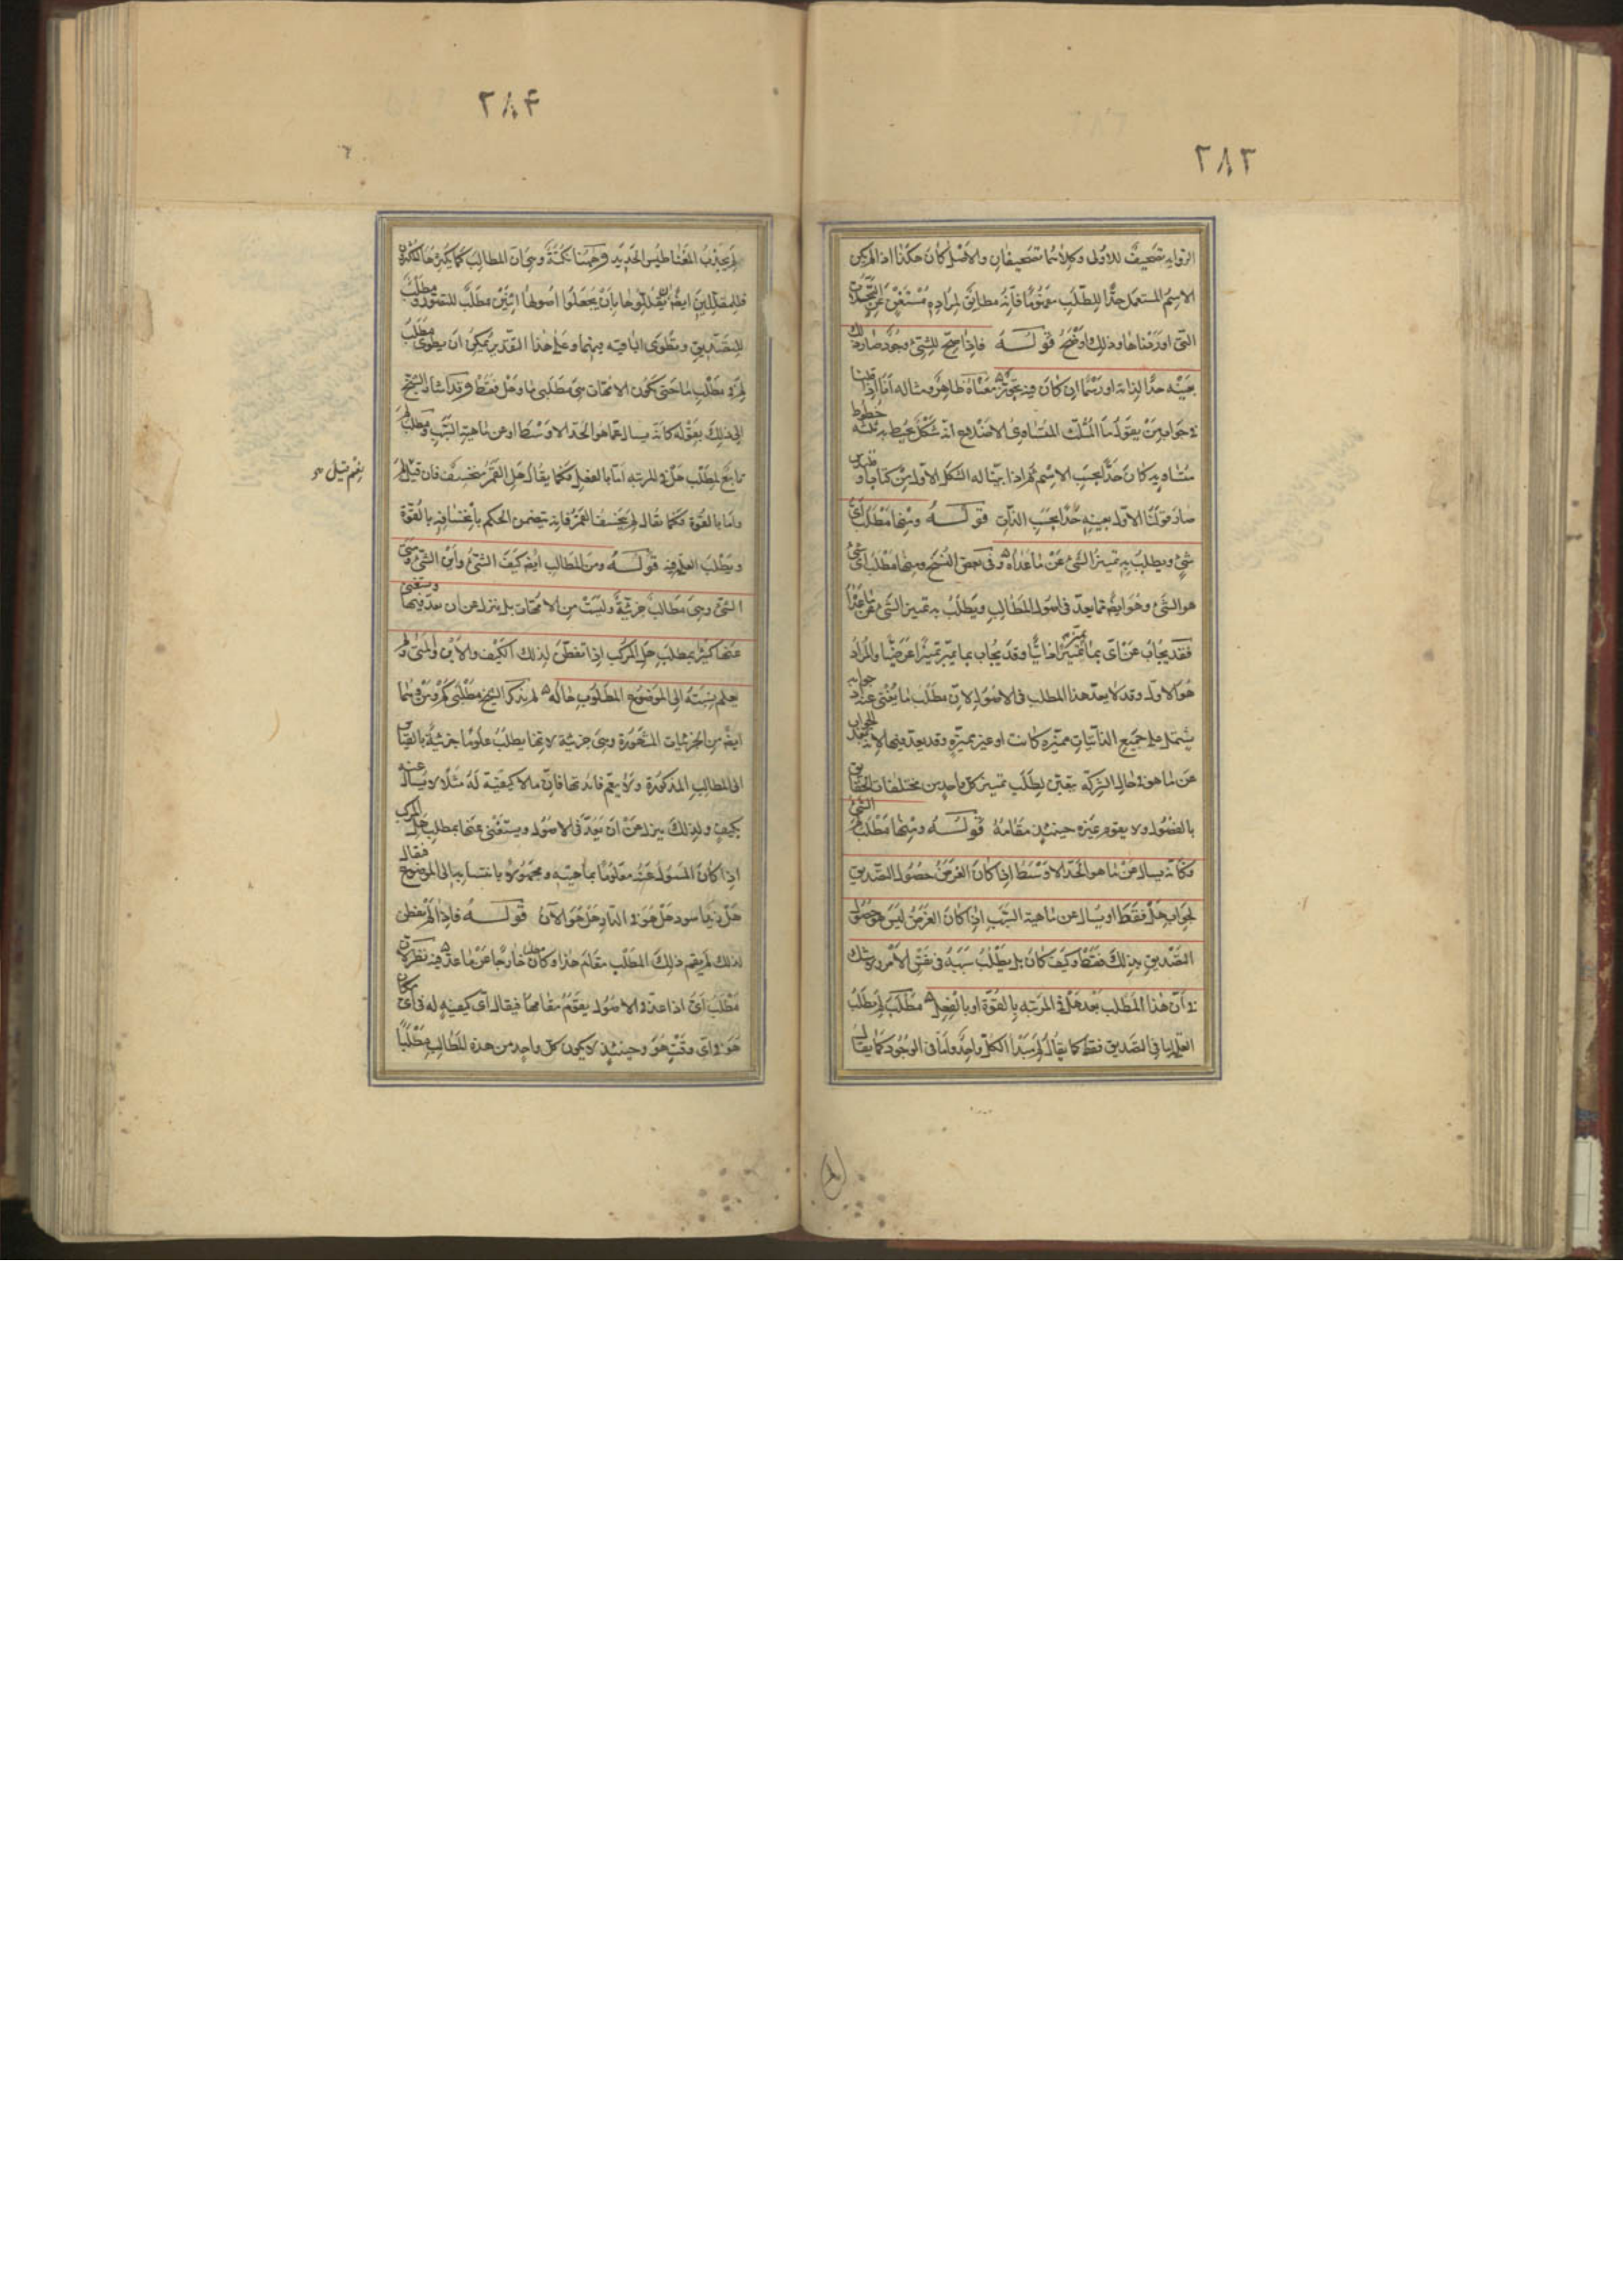 ٢٨٣
الرواية تصحيف للاولى وكلاهما تصحيفان والاصل كان هكذا اذا لم يكن
الاسم المستعمل حدًا للطلب مفهومًا فانه مطابق لمراده مستغن عن
التى اوردناها وذلك واضح قوله فاذا صح للشئ وجود صار ذلك
بعينه حدًا لذاته او رسمًا ان كان فيه تجوّز معناه ظاهر ومثاله انّا اذا قلنا
فى جواب من يقول ما المثلث المتساوى الاضلاع انه شكل يحيط به ثلثة خطوط
متساوية كان حدًا بحسب الاسم ثم اذا بيّنا له الشكل الاول من كتاب اقليدس
صار قولنا الاول بعينه حدًا بحسب الذات قوله ومنها مطلب اىّ
شئ ويطلب به تميز الشئ عن ما عداه وفى بعض النسخ ومنها مطلب اىّ شئ
هو الشئ وهو ايضًا مما يعدّ فى اصول المطالب ويطلب به تميز الشئ عن ما عداه
فقد يجاب عن اىّ بما يميّز تميزًا ذاتيًا وقد يجاب بما يميّز تميزًا عرضيًا والمراد
هو الاول وقد لا يعدّ هذا المطلب فى الاصول لان مطلب ما يغنى عنه اذ جوابه
يشتمل على جميع الذاتيات مميزه كانت او غير مميزه وقد يعدّ فيها لانه الجواب
عن ما هو فى حال الشركة يتعيّن لطلب تميز كل واحد من مختلفات الحقايق
بالفصول ولا يقوم غيره حينئذ مقامه قوله ومنها مطلب لم الشئ
فكانه يسال عن ما هو الحد الاوسط اذا كان الغرض حصول التصديق
بجواب هل فقط او يسال عن ماهية السبب اذا كان الغرض ليس هو حصول
التصديق بذلك فقط وكيف كان بل يطلب سببه فى نفس الامر ولا شك
فى ان هذا المطلب بعد هل فى المرتبه بالقوّة او بالفعل مطلب لم يطلب
العلّه اما فى التصديق فقط كما يقال لم مبدا الكل واحد واما فى الوجود كما يقال
٢٨۴
لم يجذب المغناطيس الحديد وههنا نكتة وهى ان المطالب كما يكثر
فللمقللين ايضًا ان يقللوها بان يجعلوا اصولها اثنين مطلب للتصور ومطلب
للتصديق ويطوى الباقيه بينهما وعلى هذا التقدير يمكن ان يطوى مطلب
لم فى مطلب ما حتى تكون الامهات هى مطلبى ما وهل فقط وقد اشار الشيخ
الى ذلك بقوله كانه يسال عما هو الحد الاوسط او عن ماهية السبب ومطلب لم
تابع لمطلب هل فى المرتبه اما بالفعل فكما يقال هل القمر منخسف فان قيل لم
واما بالقوة فكما يقال لم يخسف القمر فانه يتضمن الحكم بانخسافه بالقوة
ويطلب العلّه فيه قوله ومن المطالب ايضًا كيف الشئ واين الشئ ومتى
الشئ وهى مطالب جزئيّة وليست من الامهات بل ينزل عن ان يعدّ فيها ويستغنى
عنها كثيرًا بمطلب هل المركب اذا تفطّن لذلك الكيف والاين والمتى ولم
يعلم نسبته الى الموضوع المطلوب حاله لم يذكر الشيخ مطلبى كم ومن وهما
ايضًا من الجزئيات المشهورة وهى جزئية لانها يطلب علومًا جزئية بالقياس
الى المطالب المذكورة ولا يعمّ فائدتها فان ما لا كيفية له مثلًا لا يسال عنه
بكيف ولذلك ينزل عن ان يعدّ فى الاصول ويستغنى عنها بمطلب هل المركب
اذا كان المسول عنه معلومًا بماهيته ومجهولًا بانتسابه الى الموضوع فقال
هل زيد اسود هل هو فى الدار هل هو الآن قوله فاذا لم يفطن
لذلك لم يقم ذلك المطلب مقام هذا وكان خارجًا عن ما عدّ فيه نظر لان
مطلب اىّ اذا عدّ فى الاصول يقوم مقامها فيقال اى كيفية له فى اىّ مكان
هو فى اى وقت هو وحينئذ لا يكون كل واحد من هذه المطالب مطلبًا